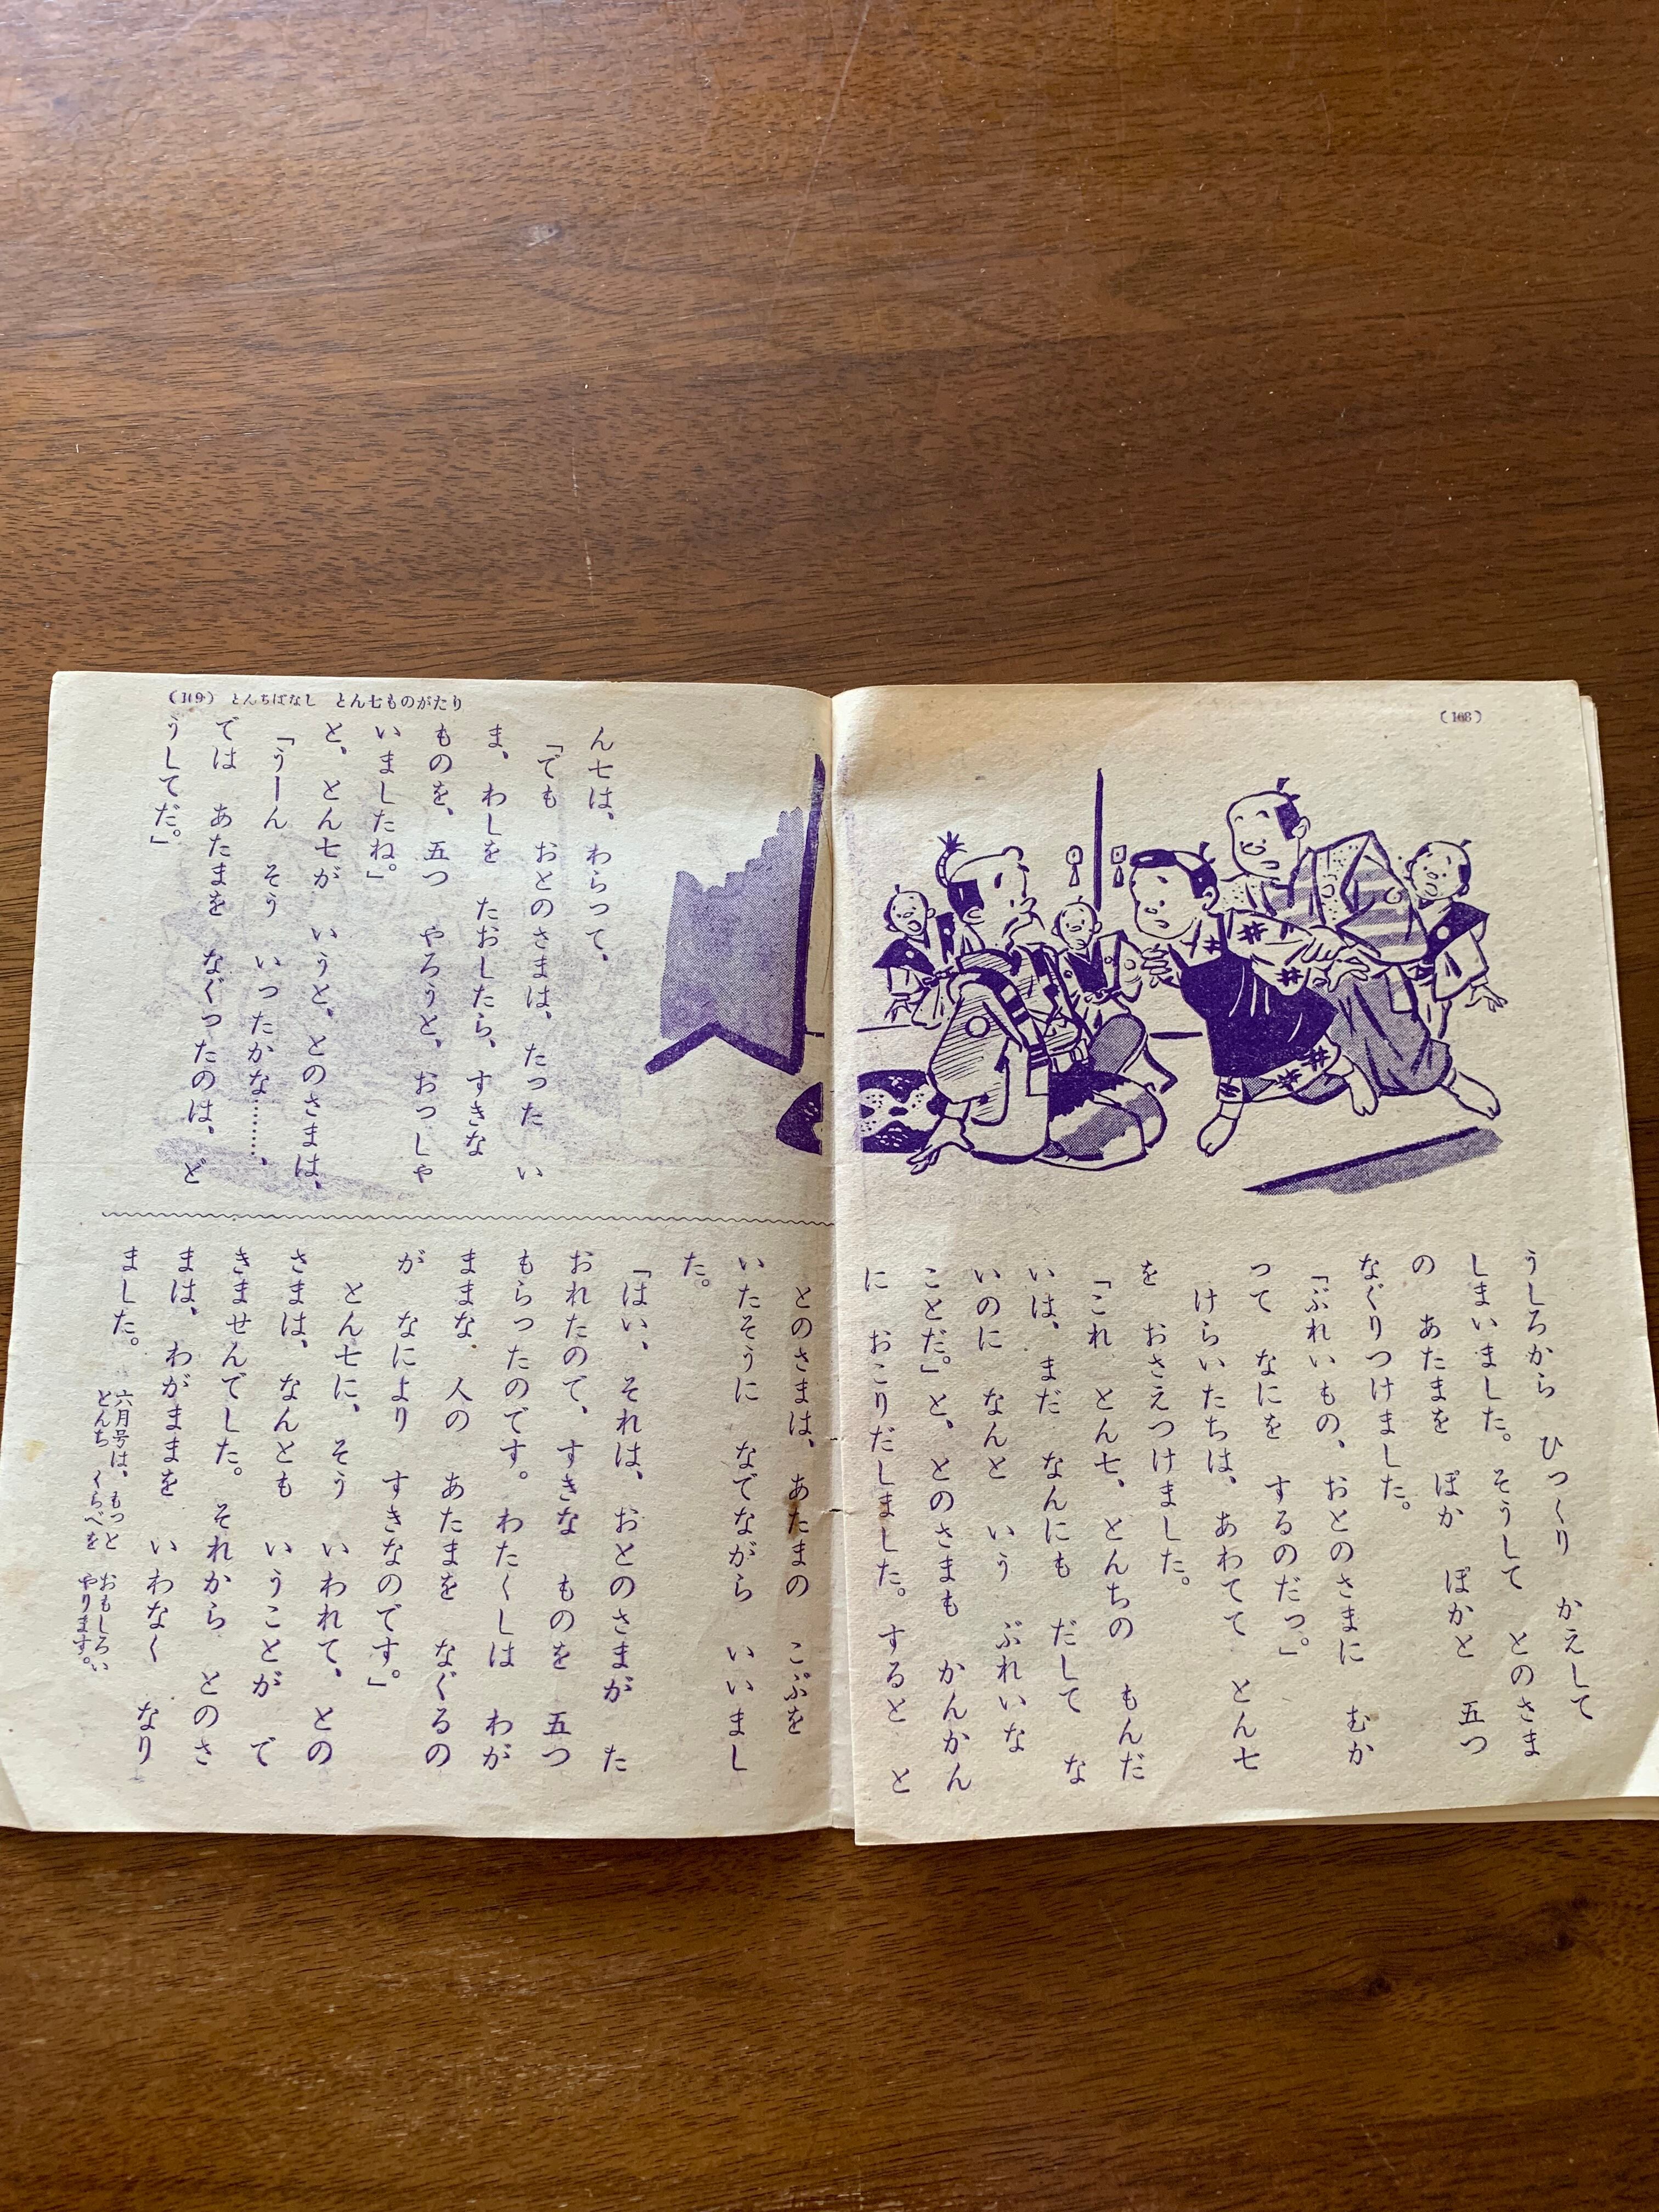 うしろから ひっくり かえして
しまいました。そうして とのさま
の あたまを ぽか ぽかと 五つ
なぐりつけました。
「ぶれいもの、おとのさまに むか
って なにを するのだっ。」
けらいたちは、あわてて とん七
を おさえつけました。
「これ とん七、とんちの もんだ
いは、まだ なんにも だして な
いのに なんと いう ぶれいな
ことだ。」と、とのさまも かんかん
に おこりだしました。すると と
とんちばなし とん七ものがたり
ん七は、わらって、
「でも おとのさまは、たった い
ま、わしを たおしたら、すきな
ものを、五つ やろうと、おっしゃ
いましたね。」
と、とん七が いうと、とのさまは、
「うーん そう いったかな………、
では あたまを なぐったのは、ど
うしてだ。」
とのさまは、あたまの こぶを
いたそうに なでながら いいまし
た。
「はい、それは、おとのさまが た
おれたので、すきな ものを 五つ
もらったのです。わたくしは わが
ままな 人の あたまを なぐるの
が なにより すきなのです。」
とん七に、そう いわれて、との
さまは、なんとも いうことが で
きませんでした。それから とのさ
まは、わがままを いわなく なり
ました。
六月号は、もっと おもしろい
とんち くらべを やります。